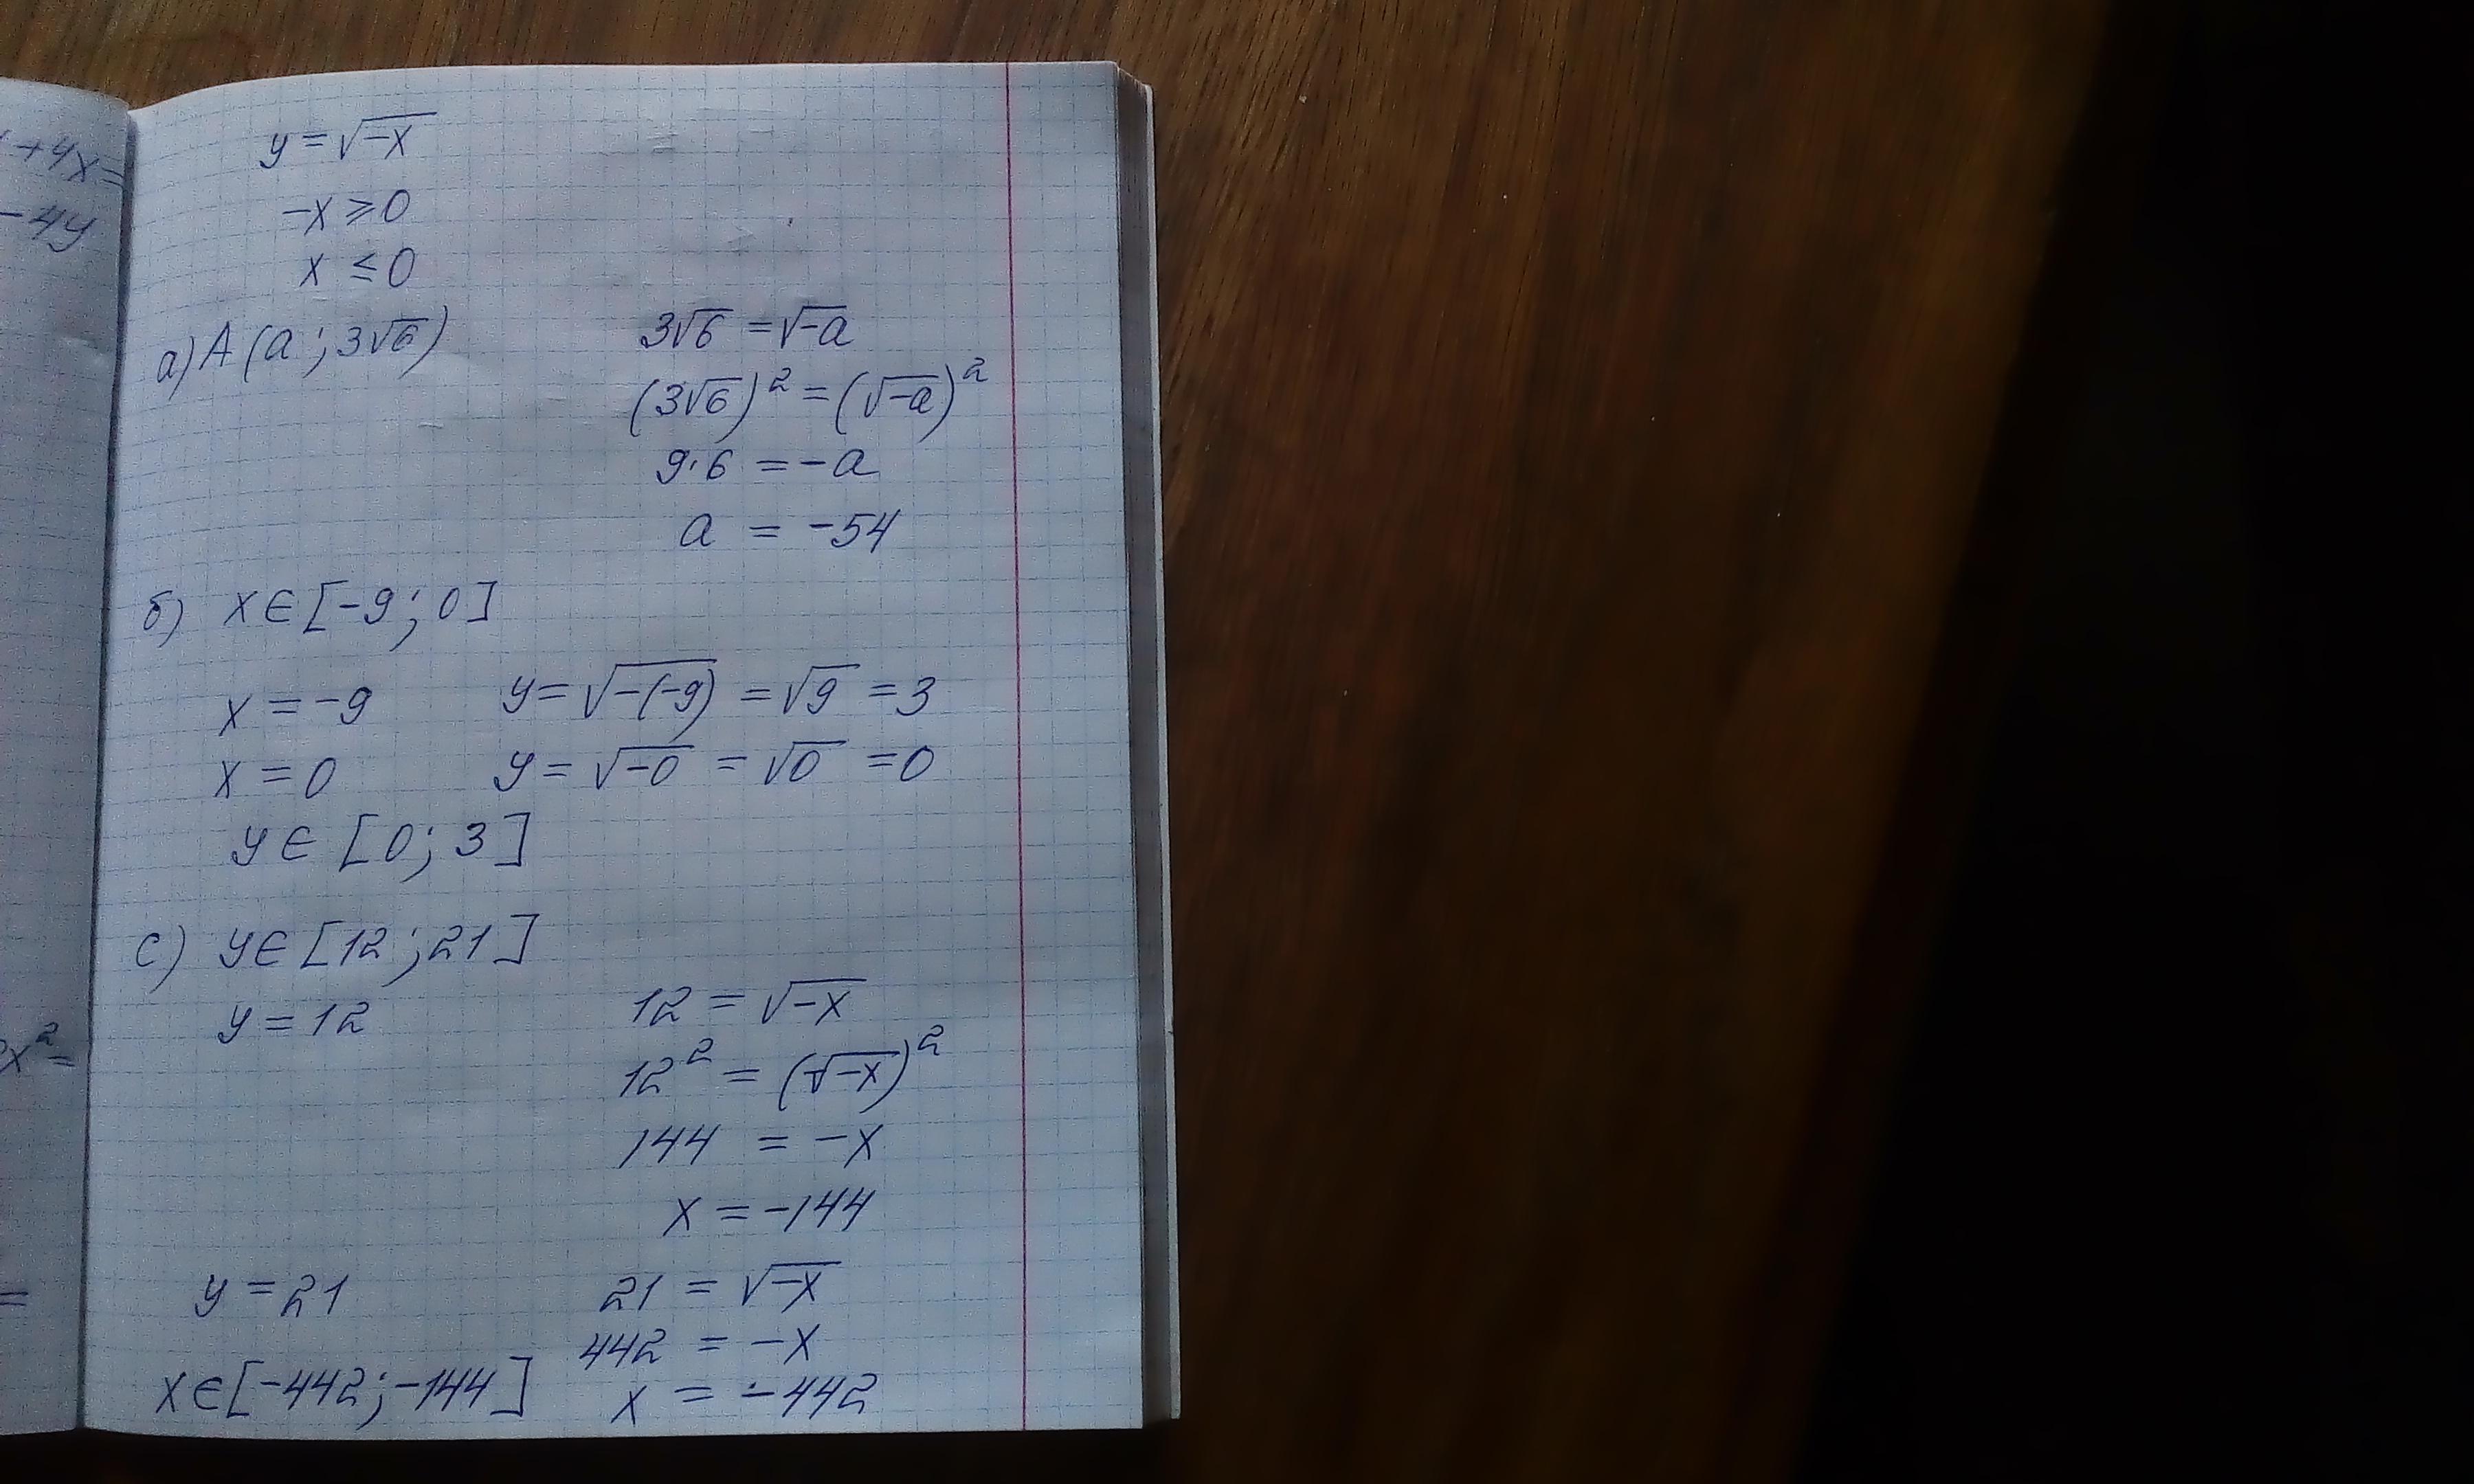 +4x=
-4y
x² =
=
y = √-x
-x ⩾ 0
x ≤ 0
а) A (a ; 3√6) 3√6 = √-a
(3√6)² = (√-a)²
9·6 = -a
a = -54
б) x ∈ [-9 ; 0]
x = -9 y = √-(-9) = √9 = 3
x = 0 y = √-0 = √0 = 0
y ∈ [0 ; 3]
c) y ∈ [12 ; 21]
y = 12 12 = √-x
12² = (√-x)²
144 = -x
x = -144
y = 21 21 = √-x
442 = -x
x ∈ [-442 ; -144] x = -442